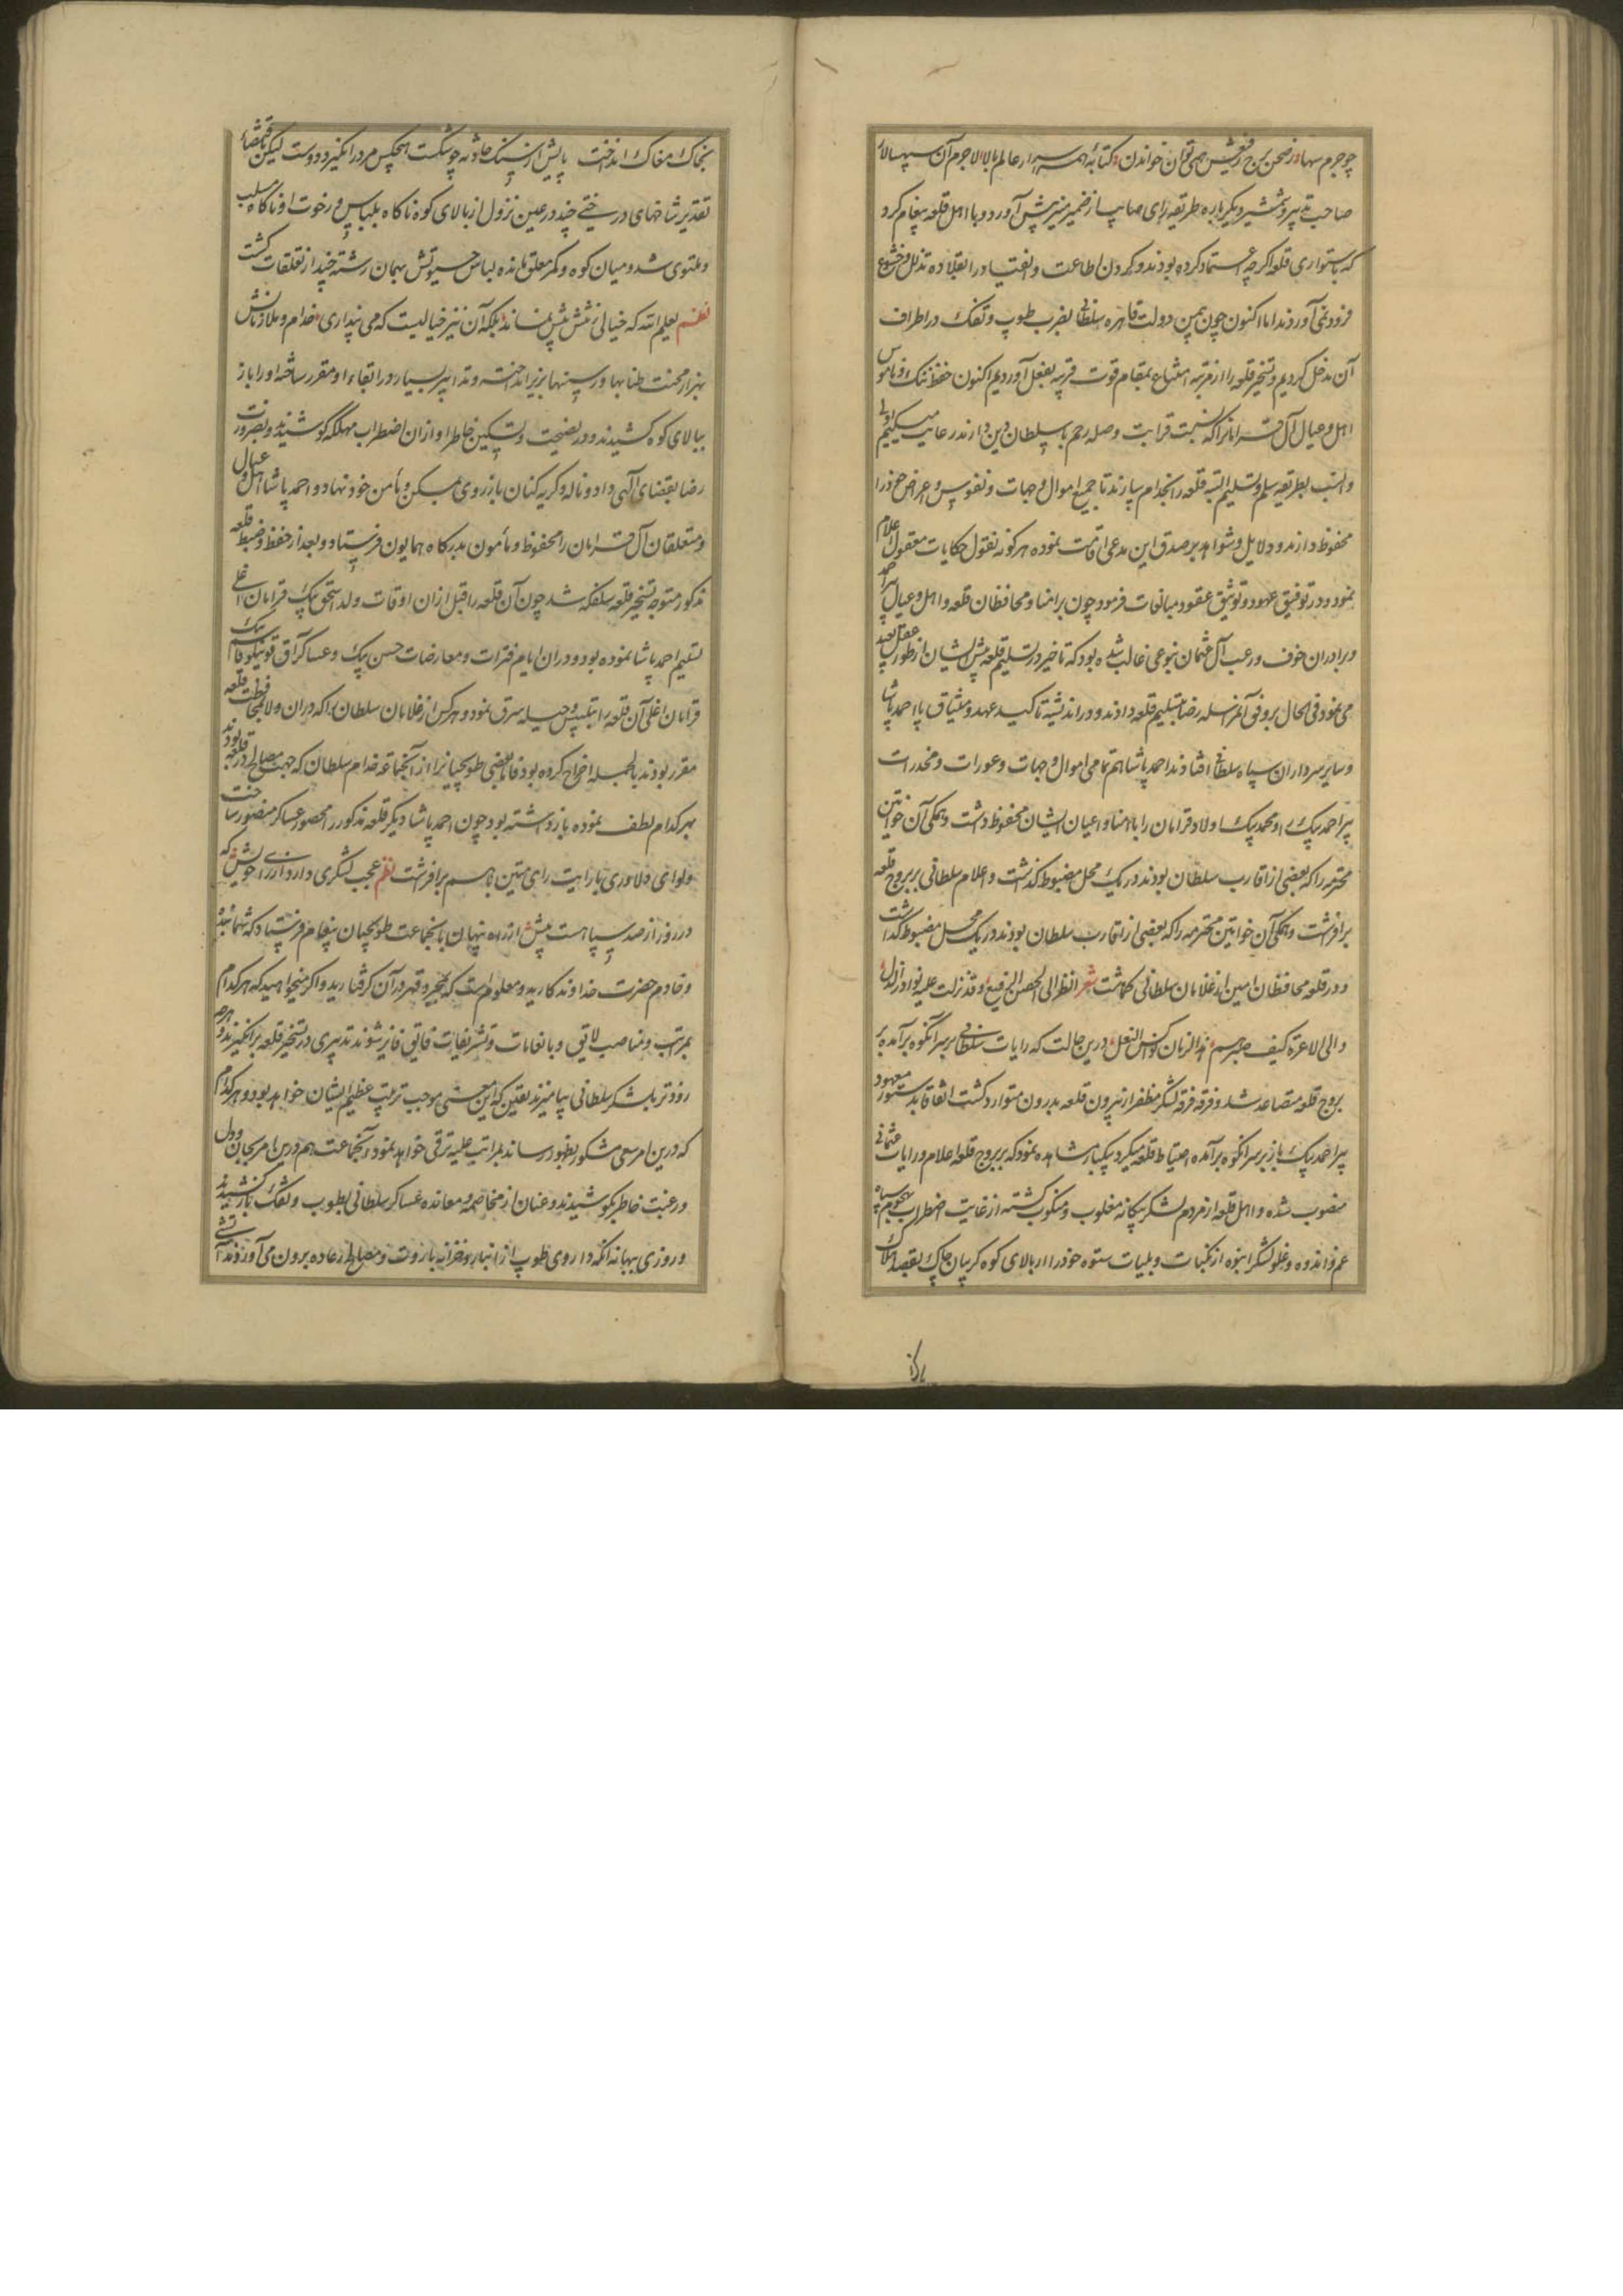 چو جرم سها در صحن برج رفیعش همی توان خواندن کتابه همه اسرار عالم بالا لاجرم آن سپهسالار
صاحب تدبیر و شمشیر دیگر باره طریقه رای صایب از ضمیر منیر پیش آورد و با اهل قلعه پیغام کرد
که باستواری قلعه اکرچه اعتماد کرده بودند و کردن اطاعت و انقیاد را بقلاده تذلل و خشوع
فرود نمی آوردند اما اکنون چون بیمن دولت قاهره سلطانی بضرب طوپ و تفنک در اطراف
آن مدخل کردیم و تسخیر قلعه را از مرتبه امتناع بمقام قوت قریبه بفعل آوردیم اکنون حفظ ننک و ناموس
اهل و عیال آل قرامانرا که نسبت قرابت و صله رحم با سلطان دین دارند رعایت میکنیم اولی
و انسب بطریقه سلم و تسلیم البته قلعه را بخدام سپارند تا جمیع اموال و جهات و نفوس و اعراض خود را
محفوظ دارند و دلایل و شواهد بر صدق این مدعی اقامت نموده هر کونه نقول حکایات معقول اعلام
نمود و در توفیق عهود و توثیق عقود مبالغات فرمود چون بر امنا و محافظان قلعه و اهل و عیال پیر احمد
و برادران خوف و رعب آل عثمان بنوعی غالب شده بود که تاخیر در تسلیم قلعه پیش ایشان از طور عقل بعید
می نمود فی الحال بر وفق آن مراسله رضا بتسلیم قلعه دادند و در اندیشه تاکید عهد و میثاق با احمد پاشا
و سایر سرداران سپاه سلطانی افتادند احمد پاشا هم تمامی اموال و جهات و عورات و مخدرات
پیر احمد بیک و محمد بیک اولاد قرامان را با امنا و اعیان ایشان محفوظ داشت و همکی آن خواتین
محترمه را که بعضی از اقارب سلطان بودند در یک محل مضبوط کذاشت و اعلام سلطانی بر بروج قلعه
برافراشت و همکی آن خواتین محترمه را که بعضی از اقارب سلطان بودند در یک محل مضبوط کذاشت
و در قلعه محافظان امین از غلامان سلطانی کماشت شعر انظر الی الحصن الرفیع وقد نزلت علیه نوادر
و الی الاعزة کیف صیرهم الزمان درین حالت که رایات سلطانی بر سر آنکوه برآمده بر
بروج قلعه متصاعد شد و فرقه فرقه لشکر مظفر از بیرون قلعه بدرون متوارد کشت اتفاقا بدستور معهود
پیر احمد بیک باز بر سر آنکوه برآمده احتیاط قلعه میکرد یکبار مشاهده نمود که بر بروج قلعه اعلام و رایات عثمانی
منصوب شده و اهل قلعه از مردم لشکر بیکانه مغلوب و منکوب کشته از غایت اضطراب هجوم سپاه
غم و اندوه و غلو لشکر انبوه از نکبات و بلیات ستوه خود را از بالای کوه کریبان چاک بقصد هلاک
بخاک مغاک انداخت پایش از سنک حادثه چو شکست هیچکس مرد را نکیرد دوست لیکن بمقتضای
تقدیر شاخهای درختی چند در عین نزول از بالای کوه ناکاه بلباس و رخوت او ناکاه
و ملتوی شد و میان کوه و کمر معلق مانده لباس حیوتش بهمان رشته چند از تعلقات کشت
نظم یعلم الله که خیالی ز تنش بیش نماند بلکه آن نیز خیالیست که می پنداری خدام و ملازمانش
بهزار محنت طنابها و رسنها بزیر انداخته و تدابیر بسیار در ابقاء او مقرر ساخته او را باز
ببالای کوه کشیدند و در نصیحت و تسکین خاطر او از ان اضطراب مهلکه کوشیدند و بضرورت
رضا بقضای الهی داد و ناله و کریه کنان باز روی بمسکن و مأمن خود نهاد و احمد پاشا اهل و عیال
و متعلقان آل قرامان را محفوظ و مأمون بدرکاه همایون فرستاد و بعد از حفظ و ضبط قلعه
مذکور متوجه تسخیر قلعه سلفکه شد چون آن قلعه را قبل از ان اوقات ولد اسحق بیک قرامان اغلی
تسلیم احمد پاشا نموده بود و در ان ایام فترات و معارضات حسن بیک و عساکر آق قوینلو قاسم بیک
قرامان اغلی آن قلعه را بتلبیس و حیله سرق نمود و هر کس از غلامان سلطان را که در ان ولا بمحافظت قلعه
مقرر بودند بالجمله اخراج کرده بود فاما بعضی طوبچیانرا از آنجماعه خدام سلطان که جهت مصالح در قلعه بودند
بهر کدام لطف نموده باز داشته بود چون احمد پاشا دیکر قلعه مذکور را محصور عساکر منصور ساخت
و لوای دلاوری با رایت رای متین باهم برافراشت نظم عجب لشکری دارد از رای خویش که
در روز از صد سپاهست پیش از راه پنهان بآنجماعت طوبچیان پیغام فرستاد که شما بنده
و خادم حضرت خداوندکارید و معلوم است که بجبر و قهر در آن کرفتارید و اکر میخواهید که هر کدام
بمراتب و مناصب لایق و بانعامات و تشریفات فایق فایز شوید تدبیری در تسخیر قلعه برانکیزند و هرچه
زودتر بلشکر سلطانی بیامیزند یقین که این معنی موجب تربیت عظیم ایشان خواهد بود و هر کدام
که درین امر سعی مشکور بظهور رساند بمراتب علیه ترقی خواهد نمود آنجماعت هم درین امر بجان و دل
و رغبت خاطر بکوشیدند و عنان از مخاصمه و معانده عساکر سلطانی بطوب و تفنک باز کشیدند
و روزی ببهانه آنکه داروی طوپ از انبار و خزانه باروت و مصالح رعاده برون می آوردند آتشی